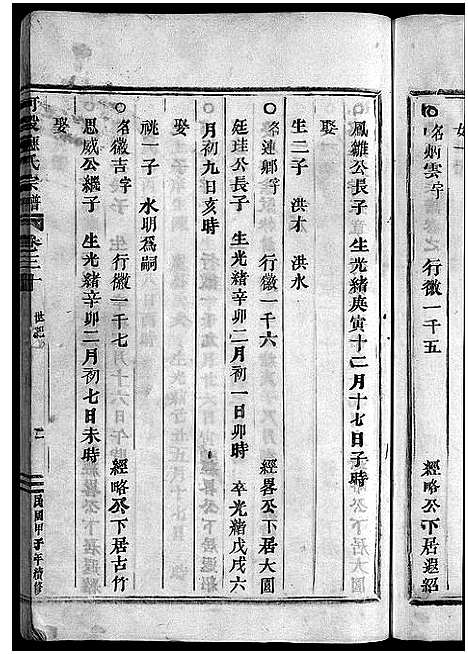 名炳雲字 行徽一千五 經略公下居遐紹
鳳雛公長子 生光緒庚寅十二月十七日子時
娶
生二子 洪木 洪水
○名連鄉字 行徽一千六 經畧公下居大園
廷珪公長子 生光緒辛卯二月初一日卯時 卒光緒戊戌六
月初九日亥時
娶
祧一子 水明為嗣
○名徽吉字 行徽一千七 經略公下居古竹
思威公繼子 生光緒辛卯二月初七日未時
娶
氏宗譜 卷三十 世紀 民國甲子年續修